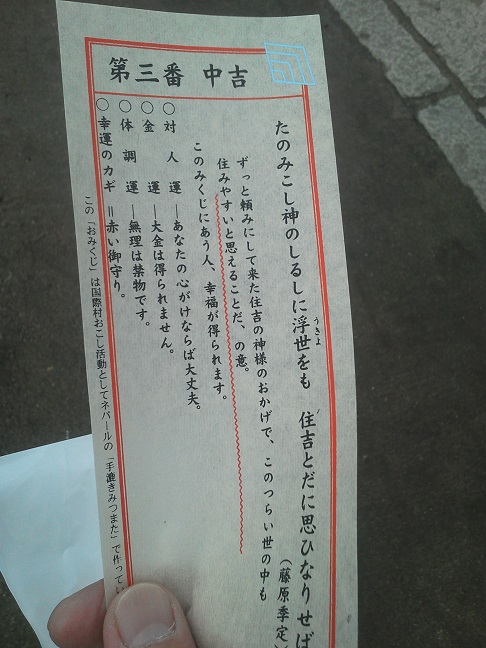 第三番 中吉
たのみこし神のしるしに浮世をも 住吉とだに思ひなりせば
うきよ
(藤原季定)
ずっと頼みにして来た住吉の神様のおかげで、このつらい世の中も
住みやすいと思えることだ、の意。
このみくじにあう人、幸福が得られます。
○対人運―あなたの心がけならば大丈夫。
○金運―大金は得られません。
○体調運―無理は禁物です。
○幸運のカギ=赤い御守り。
この「おみくじ」は国際村おこし活動としてネパールの「手漉きみつまた」で作ってい